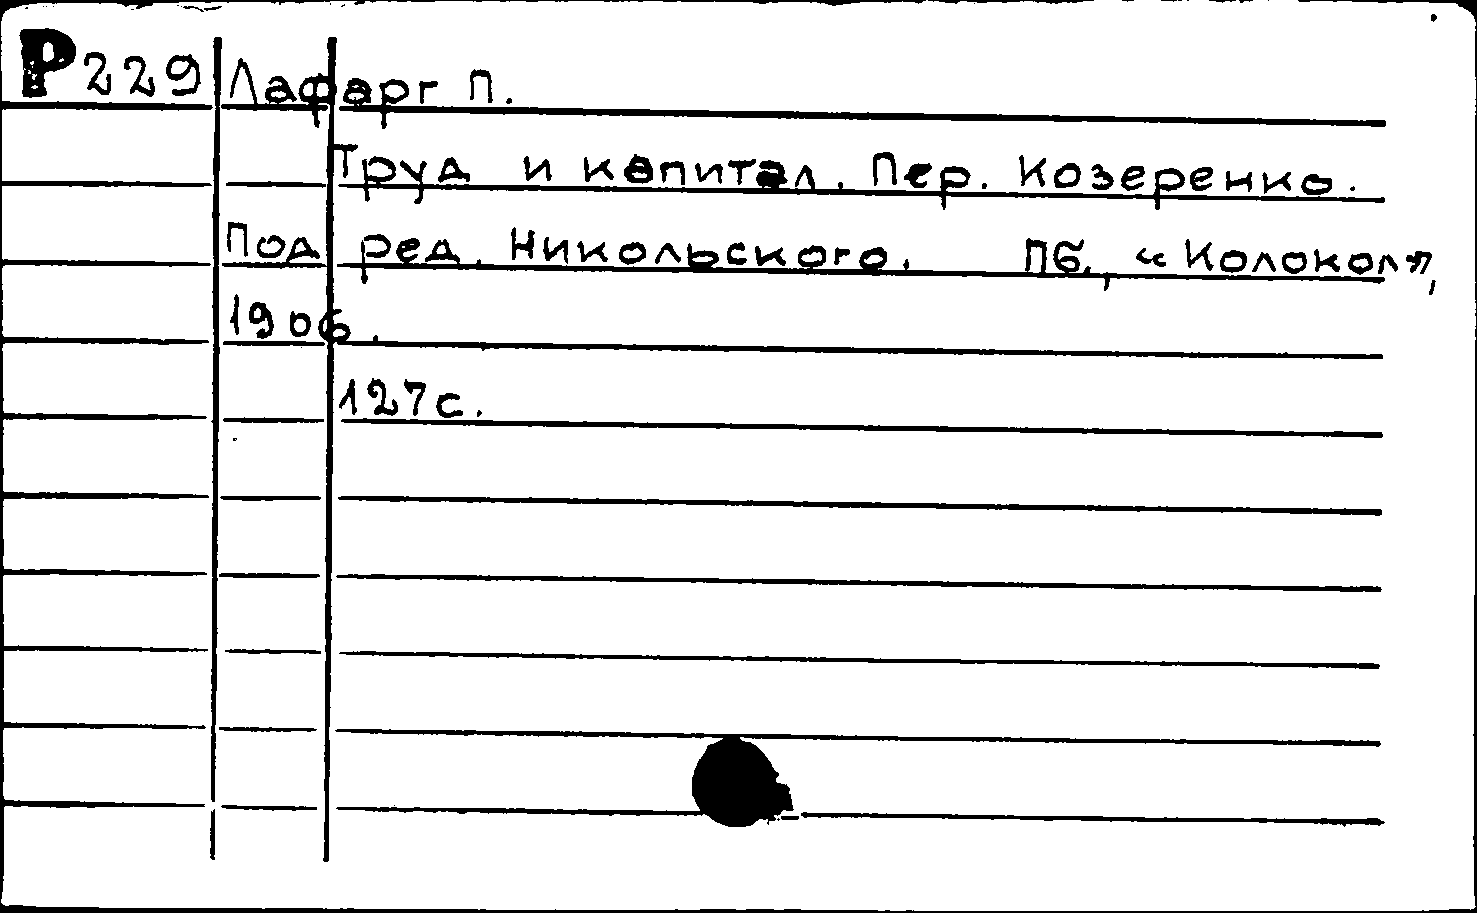 Р229 Лафарг П.
Труд и капитал. Пер. Козеренко.
Под ред. Никольского. Пб., «Колокол»,
1906.
127с.